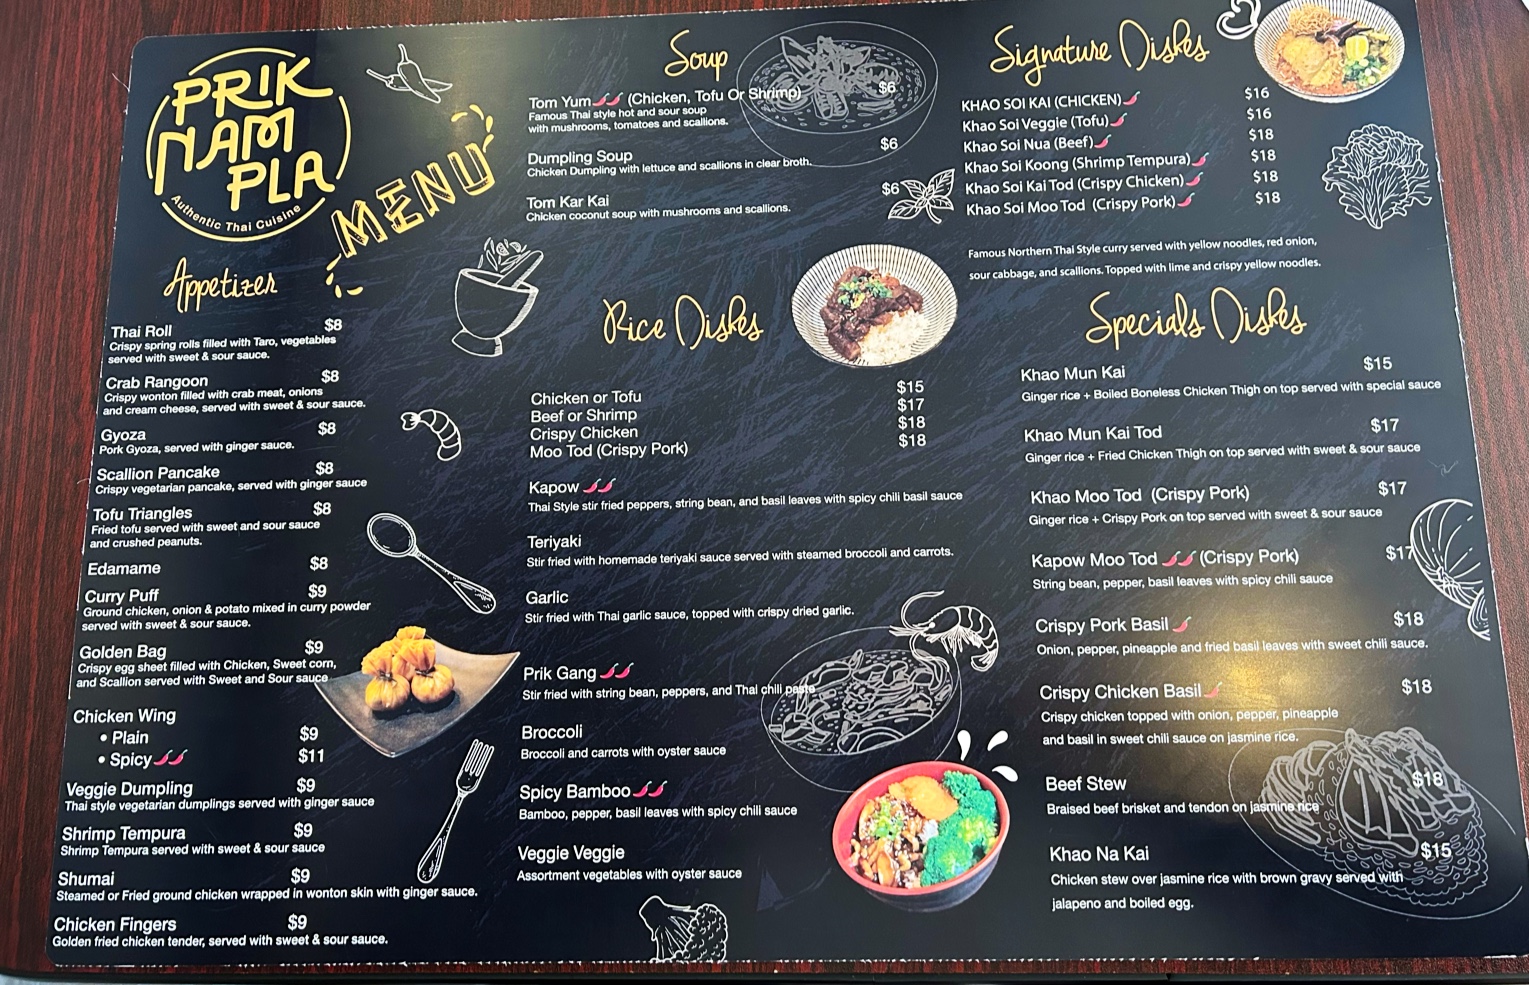 PRIK
NAM
PLA
Authentic Thai Cuisine
MENU
Appetizer
Thai Roll $8
Crispy spring rolls filled with Taro, vegetables
served with sweet & sour sauce.
Crab Rangoon $8
Crispy wonton filled with crab meat, onions
and cream cheese, served with sweet & sour sauce.
Gyoza $8
Pork Gyoza, served with ginger sauce.
Scallion Pancake $8
Crispy vegetarian pancake, served with ginger sauce
Tofu Triangles $8
Fried tofu served with sweet and sour sauce
and crushed peanuts.
Edamame $8
Curry Puff $9
Ground chicken, onion & potato mixed in curry powder
served with sweet & sour sauce.
Golden Bag $9
Crispy egg sheet filled with Chicken, Sweet corn,
and Scallion served with Sweet and Sour sauce
Chicken Wing
• Plain $9
• Spicy $11
Veggie Dumpling $9
Thai style vegetarian dumplings served with ginger sauce
Shrimp Tempura $9
Shrimp Tempura served with sweet & sour sauce
Shumai $9
Steamed or Fried ground chicken wrapped in wonton skin with ginger sauce.
Chicken Fingers $9
Golden fried chicken tender, served with sweet & sour sauce.
Soup
Tom Yum (Chicken, Tofu Or Shrimp) $6
Famous Thai style hot and sour soup
with mushrooms, tomatoes and scallions.
Dumpling Soup $6
Chicken Dumpling with lettuce and scallions in clear broth.
Tom Kar Kai $6
Chicken coconut soup with mushrooms and scallions.
Rice Dishes
Chicken or Tofu $15
Beef or Shrimp $17
Crispy Chicken $18
Moo Tod (Crispy Pork) $18
Kapow
Thai Style stir fried peppers, string bean, and basil leaves with spicy chili basil sauce
Teriyaki
Stir fried with homemade teriyaki sauce served with steamed broccoli and carrots.
Garlic
Stir fried with Thai garlic sauce, topped with crispy dried garlic.
Prik Gang
Stir fried with string bean, peppers, and Thai chili paste
Broccoli
Broccoli and carrots with oyster sauce
Spicy Bamboo
Bamboo, pepper, basil leaves with spicy chili sauce
Veggie Veggie
Assortment vegetables with oyster sauce
Signature Dishes
KHAO SOI KAI (CHICKEN) $16
Khao Soi Veggie (Tofu) $16
Khao Soi Nua (Beef) $18
Khao Soi Koong (Shrimp Tempura) $18
Khao Soi Kai Tod (Crispy Chicken) $18
Khao Soi Moo Tod (Crispy Pork) $18
Famous Northern Thai Style curry served with yellow noodles, red onion,
sour cabbage, and scallions. Topped with lime and crispy yellow noodles.
Specials Dishes
Khao Mun Kai $15
Ginger rice + Boiled Boneless Chicken Thigh on top served with special sauce
Khao Mun Kai Tod $17
Ginger rice + Fried Chicken Thigh on top served with sweet & sour sauce
Khao Moo Tod (Crispy Pork) $17
Ginger rice + Crispy Pork on top served with sweet & sour sauce
Kapow Moo Tod (Crispy Pork) $17
String bean, pepper, basil leaves with spicy chili sauce
Crispy Pork Basil $18
Onion, pepper, pineapple and fried basil leaves with sweet chili sauce.
Crispy Chicken Basil $18
Crispy chicken topped with onion, pepper, pineapple
and basil in sweet chili sauce on jasmine rice.
Beef Stew $18
Braised beef brisket and tendon on jasmine rice
Khao Na Kai $15
Chicken stew over jasmine rice with brown gravy served with
jalapeno and boiled egg.